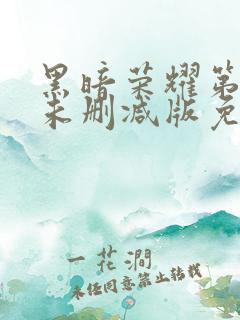 黑暗荣耀第
未删减版免
一花涧
未经同意禁止转载